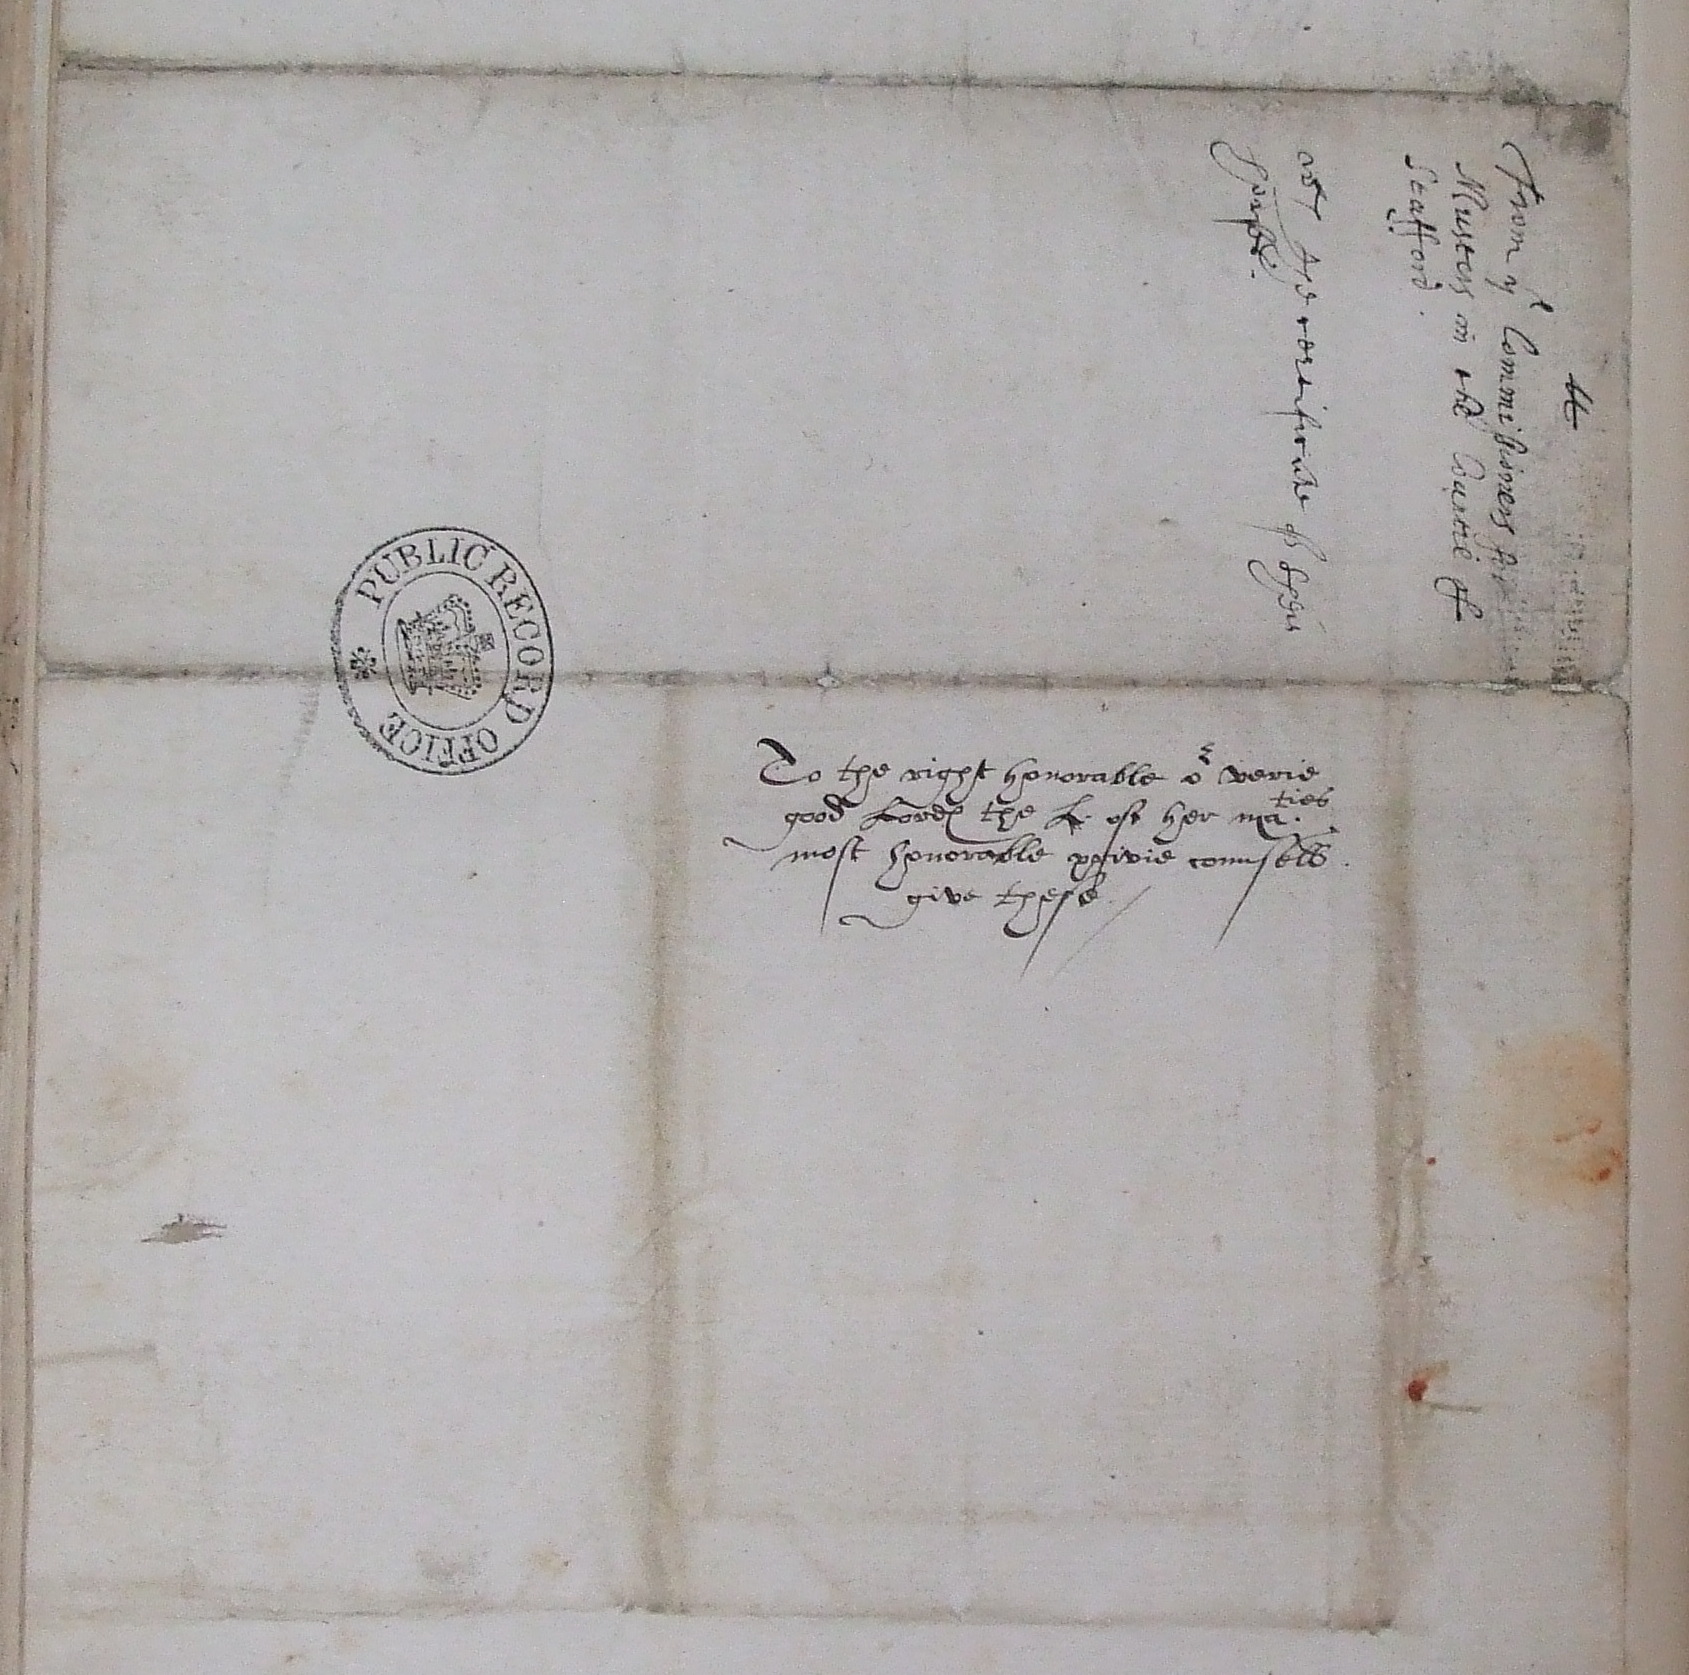 To the right honorable oʳ verie
good Lordes the L. of her maties
most honorable privie counsell
give these
From yᵉ Commissioners for
Musters in the Countie of
Stafford.
wᵗ the certificate of
PUBLIC RECORD OFFICE